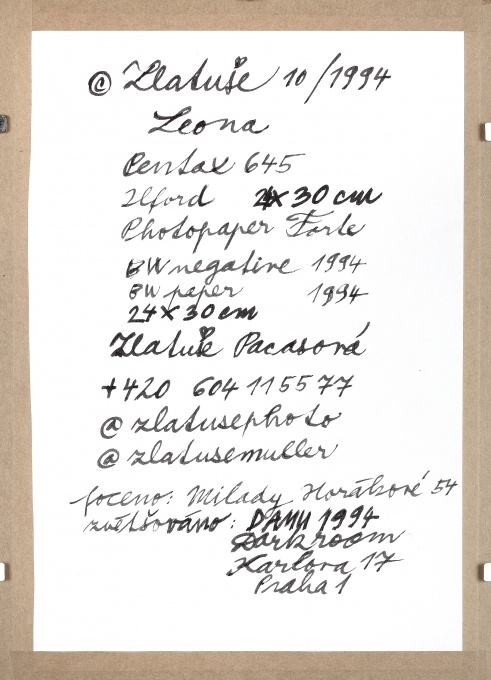 © Zlatuše 10/1994
Leona
Pentax 645
Ilford 24x30 cm
Photopaper Forte
BW negative 1994
BW paper 1994
24x30 cm
Zlatuše Pacasová
+420 604 115577
@ zlatusephoto
@ zlatusemuller
foceno: Milady Horákové 54
zvětšováno: DAMU 1994
Darkroom
Karlova 17
Praha 1